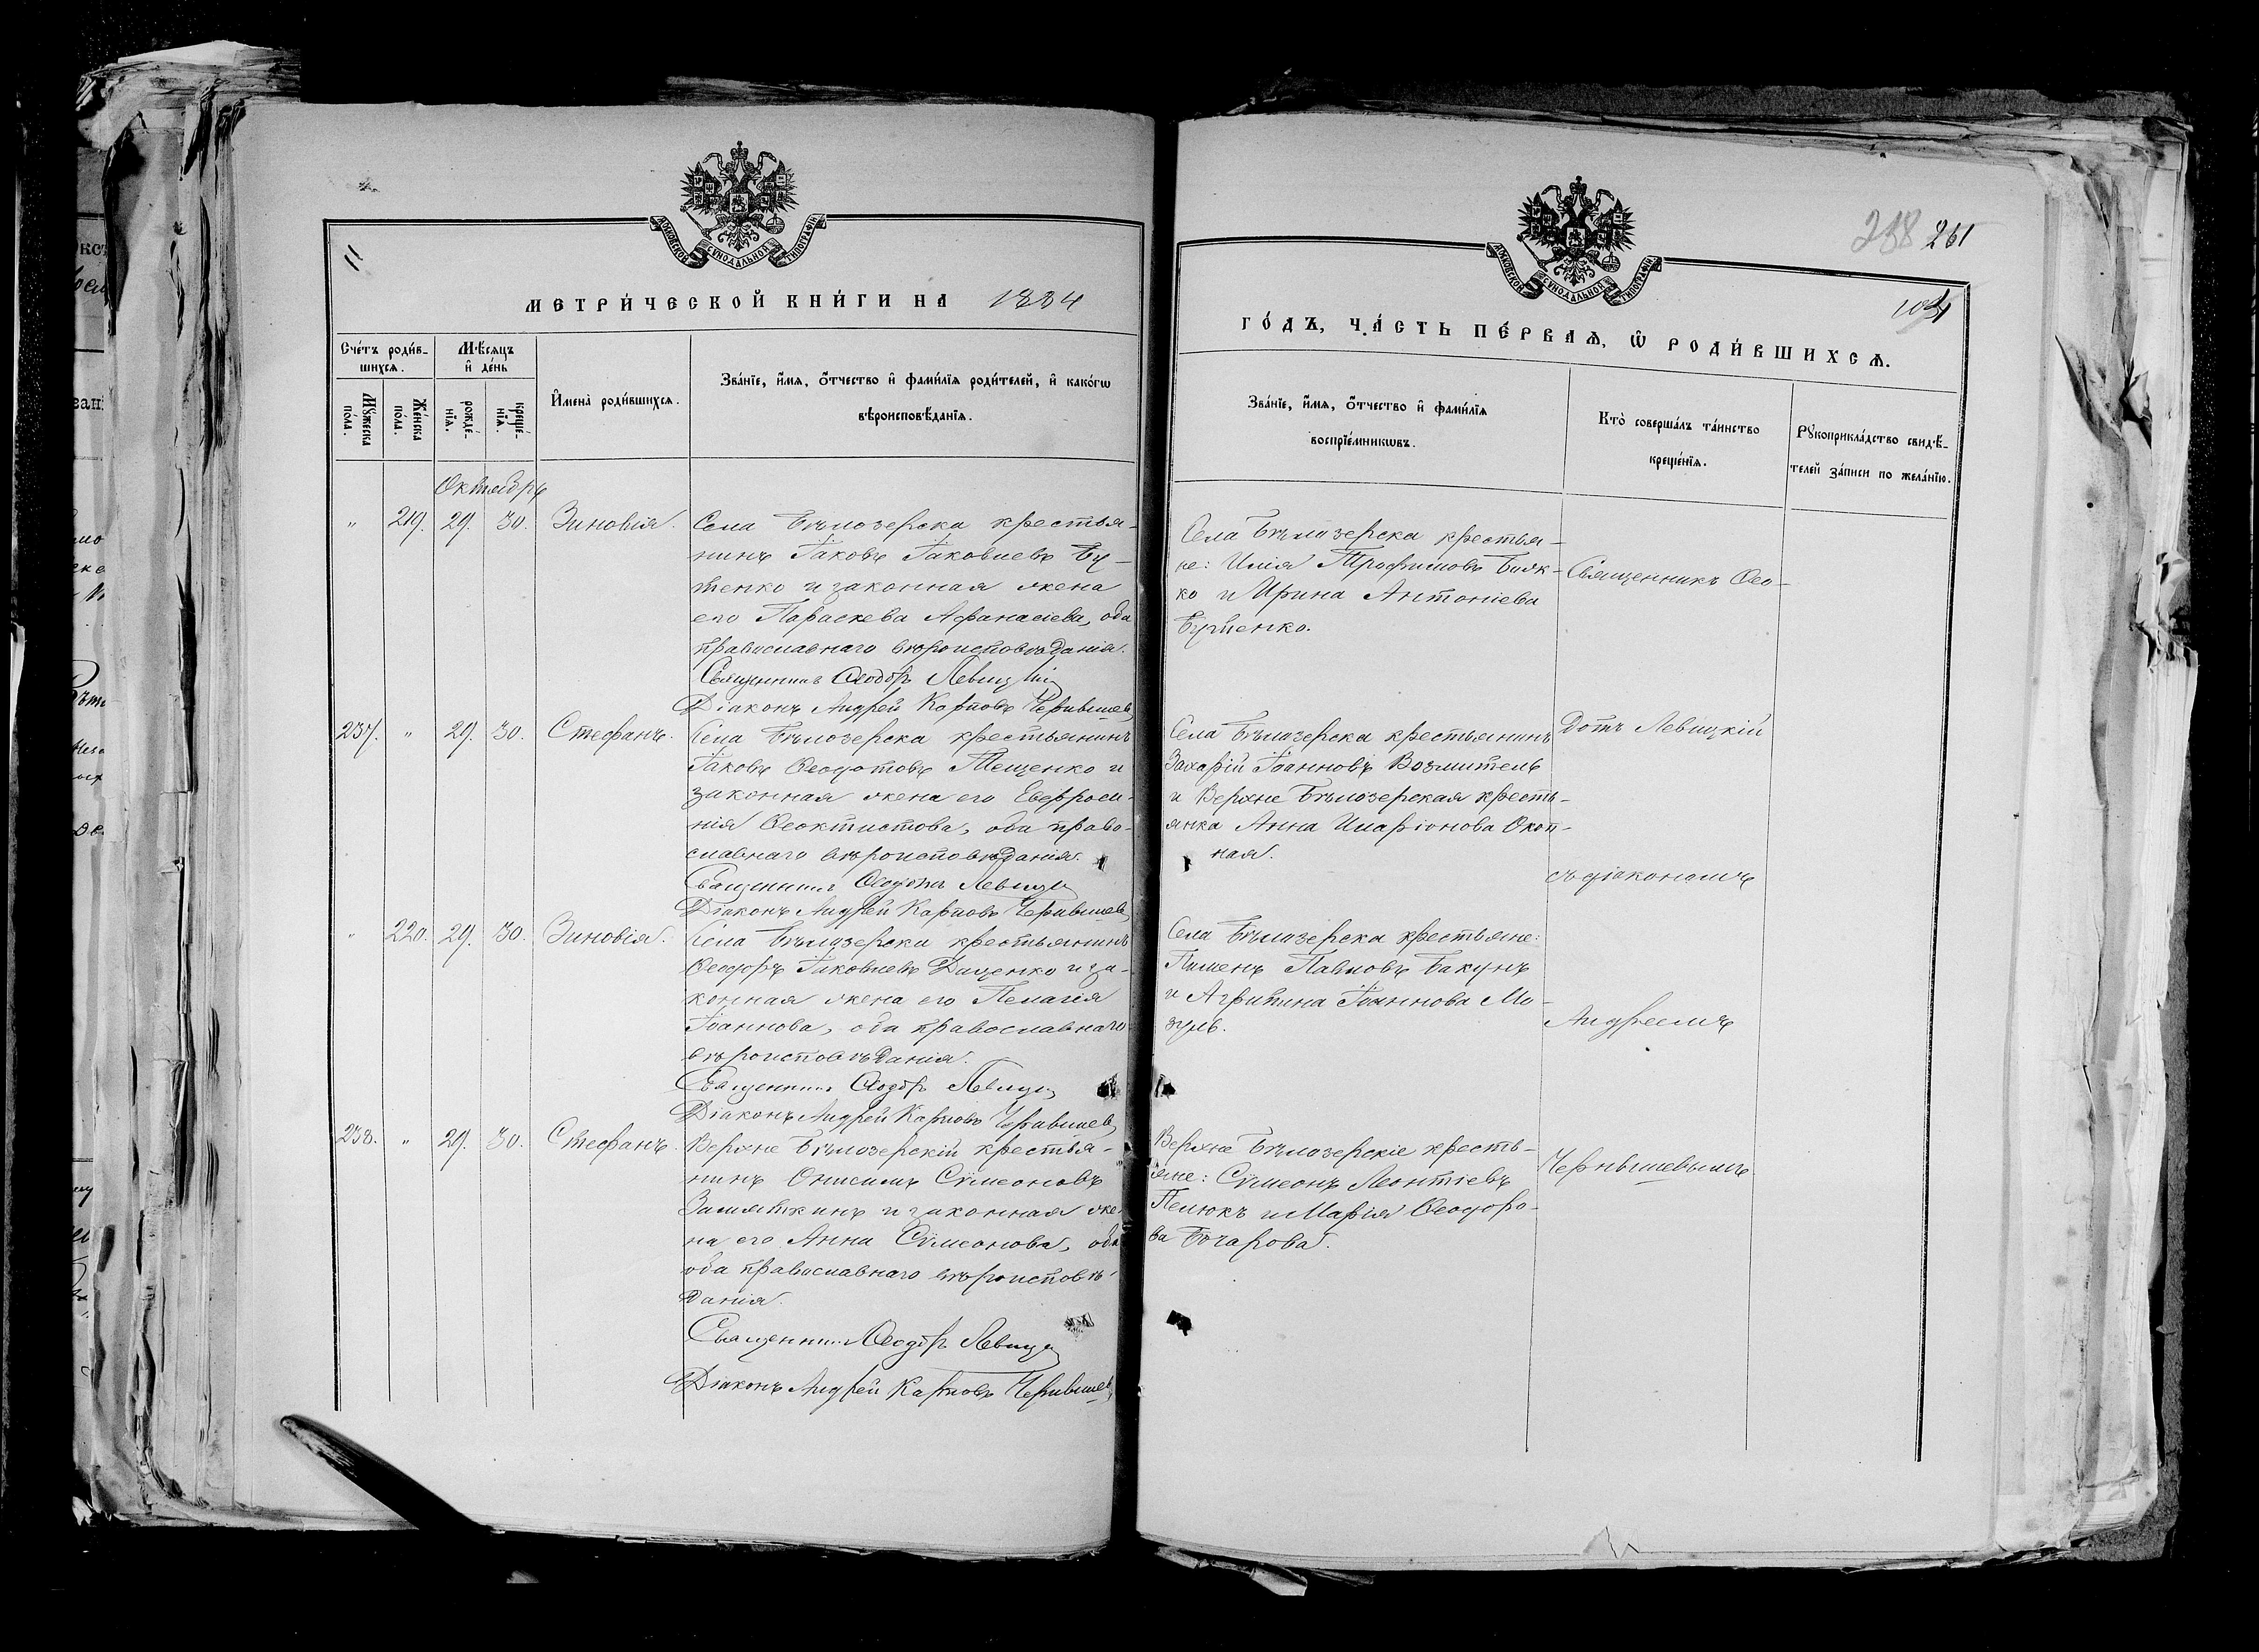 МОСКОВСКОЙ СУНОДАЛЬНОЙ ТИПОГРАФІИ
МЕТРИ́ЧЕСКОЙ КНИ́ГИ НА 1884
Сче́тъ роди́в-
шихсѧ.
Мѣ́сяцъ
и҆ де́нь
Мꙋ́жеска
по́ла.
Же́нска
по́ла.
рожде́-
нїѧ.
креще́-
нїѧ.
И҆мена̀ роди́вшихсѧ.
Зва́нїе, и҆́мѧ, ѻ҆́тчество и҆ фами́лїѧ роди́телей, и҆ како́гѡ
вѣроисповѣ́данїѧ.
Октябрь
" 219. 29. 30. Зиновія.
Села Бѣлозерска крестья-
нинъ Іаковъ Іаковлевъ Бу-
тенко и законная жена
его Параскева Афанасіева, оба
православнаго вѣроисповѣданія.
Священникъ Ѳеодоръ Левицкій
Діаконъ Андрей Карповъ Чернышевъ
237. " 29. 30. Стефанъ.
Села Бѣлозерска крестьянинъ
Іаковъ Ѳеодотовъ Тещенко и
законная жена его Евфроси-
нія Ѳеоктистова, оба право-
славнаго вѣроисповѣданія.
Священникъ Ѳеодоръ Левицкій
Діаконъ Андрей Карповъ Чернышевъ
" 220. 29. 30. Зиновія.
Села Бѣлозерска крестьянинъ
Ѳеодоръ Іаковлевъ Даценко и за-
конная жена его Пелагія
Іоаннова, оба православнаго
вѣроисповѣданія.
Священникъ Ѳеодоръ Левицкій
Діаконъ Андрей Карповъ Чернышевъ
238. " 29. 30. Стефанъ.
Верхне Бѣлозерскій крестья-
нинъ Онисимъ Сѵмеоновъ
Замяткинъ и законная же-
на его Анна Сѵмеонова, оба
оба православнаго вѣроисповѣ-
данія.
Священникъ Ѳеодоръ Левицкій
Діаконъ Андрей Карповъ Чернышевъ
МОСКОВСКОЙ СУНОДАЛЬНОЙ ТИПОГРАФІИ
288 261
ГО́ДЪ, ЧА́СТЬ ПЕ́РВАѦ, Ѡ҆ РОДИ́ВШИХСѦ.
Зва́нїе, и҆́мѧ, ѻ҆́тчество и҆ фами́лїѧ
воспрїе́мникѡвъ.
Кто̀ соверша́лъ та́инство
креще́нїѧ.
Рꙋкоприкла́дство свидѣ́-
телей за́писи по жела́нїю.
Села Бѣлозерска крестья-
не: Илія Трофимовъ Бияк-
ко и Ирина Антоніева
Бутенко.
Села Бѣлозерска крестьянинъ
Захарій Іоанновъ Возлитель
и Верхне Бѣлозерская кресть-
янка Анна Иларіонова Окоп-
ная.
Села Бѣлозерска крестьяне:
Пименъ Павловъ Бакунъ
и Агрипина Іоаннова Мо-
зуль.
Верхне Бѣлозерскіе кресть-
яне: Сѵмеонъ Леонтіевъ
Пелюкъ и Марія Ѳеодоро-
ва Бочарова.
Священникъ Ѳео-
доръ Левицкій
съ діакономъ
Андреемъ
Чернышевымъ